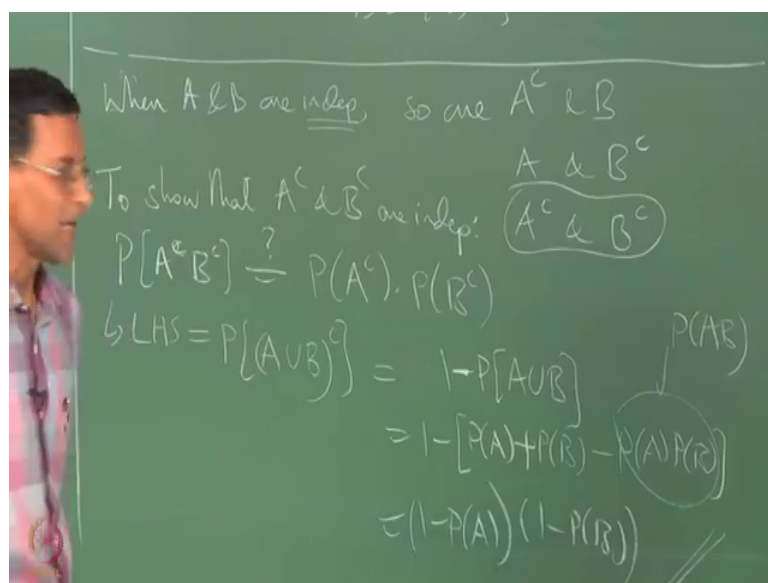 When A & B are indep, so are Aᶜ & B
A & Bᶜ
To show that Aᶜ & Bᶜ are indep: Aᶜ & Bᶜ
P[AᶜBᶜ] ≟ P(Aᶜ).P(Bᶜ)
↳ LHS = P[(A∪B)ᶜ] = 1-P[A∪B]
P(AB)
= 1-[P(A)+P(B)-P(A)P(B)]
=(1-P(A))(1-P(B))